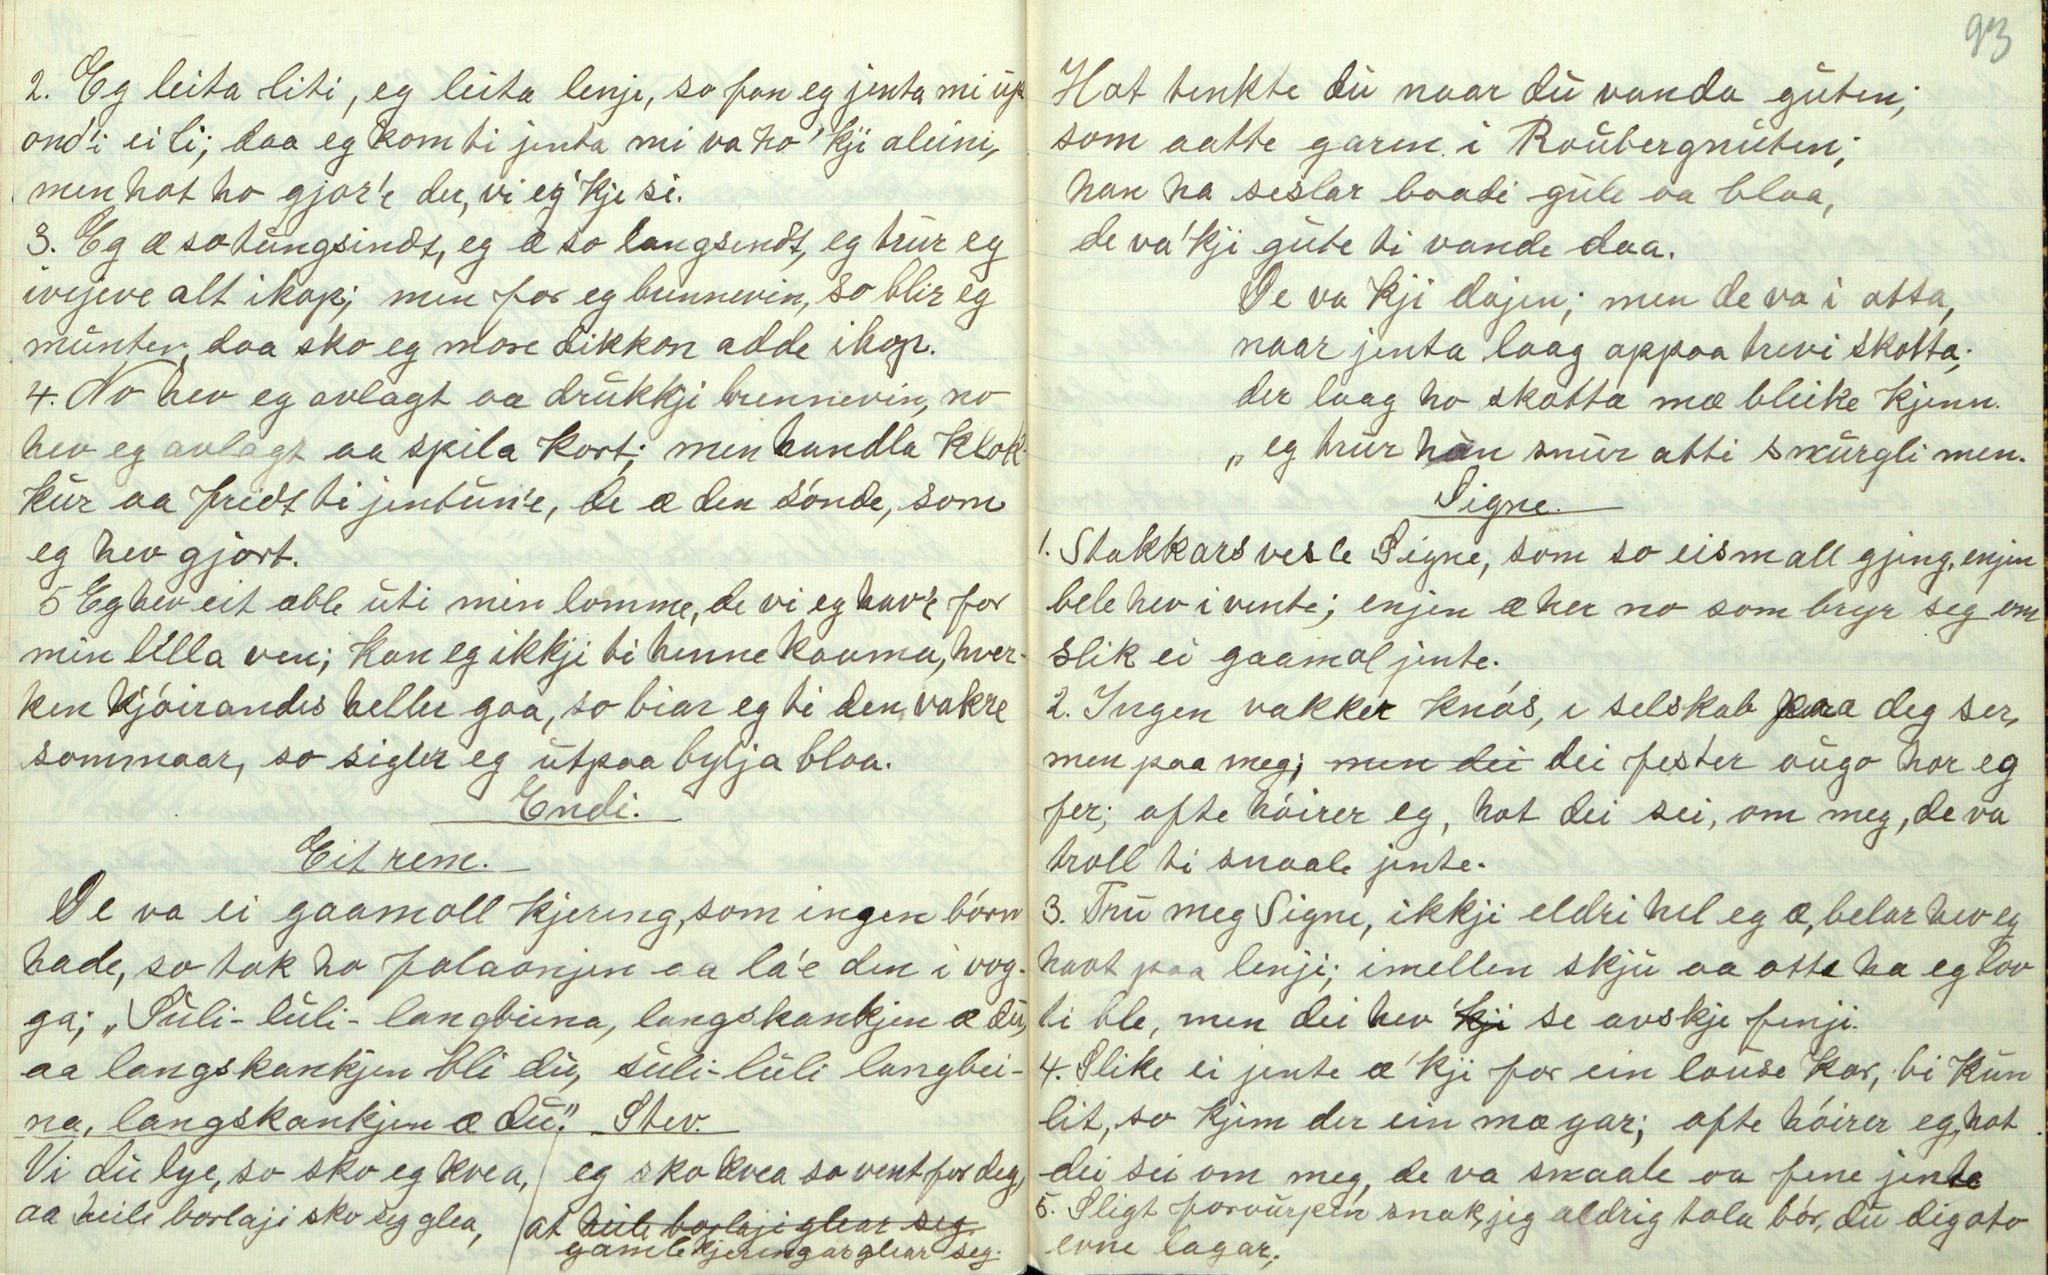 2. Eg leita liti, eg leita lenje, so fan eg jenta mi up
ond'i ei li; daa eg kom ti jenta mi va ho' kji aleini,
men hot ho gjor'e der, vi eg'kje si.
3. Eg æ so tungsindt, eg æ so langsindt, eg trur eg
ivejeve alt ihop; men for eg brennevin, so blir eg
munter, daa sko eg more dikkon adde ihop.
4. No hev eg avlagt aa drukkji brennevin, no
hev eg avlagt aa spila kort; men handla klok-
kur aa fridt ti jentun'e, de æ den sónde, som
eg hev gjort.
5 Eg hev eit æble uti min lomme, de vi eg hav'e for
min lilla ven; kan eg ikkji ti henne kaama, hver-
ken kjóirandes heller gaa, so biar eg ti den vakre
sommaar, so sigler eg utpaa bylja blaa.
Endi.
Eit rem.
De va ei gaamoll kjering, som ingen bórn
hade, so tok ho folaonjen aa la'e den i vog-
ga; „Suli-luli-langbeina, langskankjen æ du,
aa langskankjen bli du, suli-luli langbei-
na, langskankjen æ du." Stev.
Vi du lye, so sko eg kvea, eg sko kvea so vent for deg,
aa heile borlaji sko eg glea, at heile borlaji glear seg
gamle kjeringar glear seg.
93
Hot tenkte du naar du vanda guten;
som aatte garen i Raubergnuten;
han ha seslar baadi gule aa blaa,
de va'kji gute ti vande daa.
De va kji dajen; men de va i otta,
naar jenta laag oppaa trevi skotta;
der laag ho skotta mæ bleike kjenn.
„ eg trur han snur atti snurgli men.
Signe.
1. Stakkars vesle Signe, som so eismall gjeng, enjen
bele hev i vente; enjen æ her no som bryr seg om
slik ei gaamol jente.
2. Ingen vakker knós, i selskab paa deg ser,
men paa meg; men dei dei fester augo hor eg
fer; ofte hóirer eg, hot dei sei, om meg, de va
troll ti snaale jente.
3. Tru meg Signe, ikkji eldri hel eg æ, belar hev eg
havt paa lenji; imellen skju aa otte ha eg lov
ti ble, men dei hev kji se avskje fenji.
4. Slike ei jente æ' kji for ein lause kar, bi kun
lit, so kjem der ein mæ gar; ofte hóirer eg, hot
dei sei om meg, de va snaale aa fine jente
5. Sligt forvurpin snak, jeg aldrig tala bór, du digato
evne lagar;